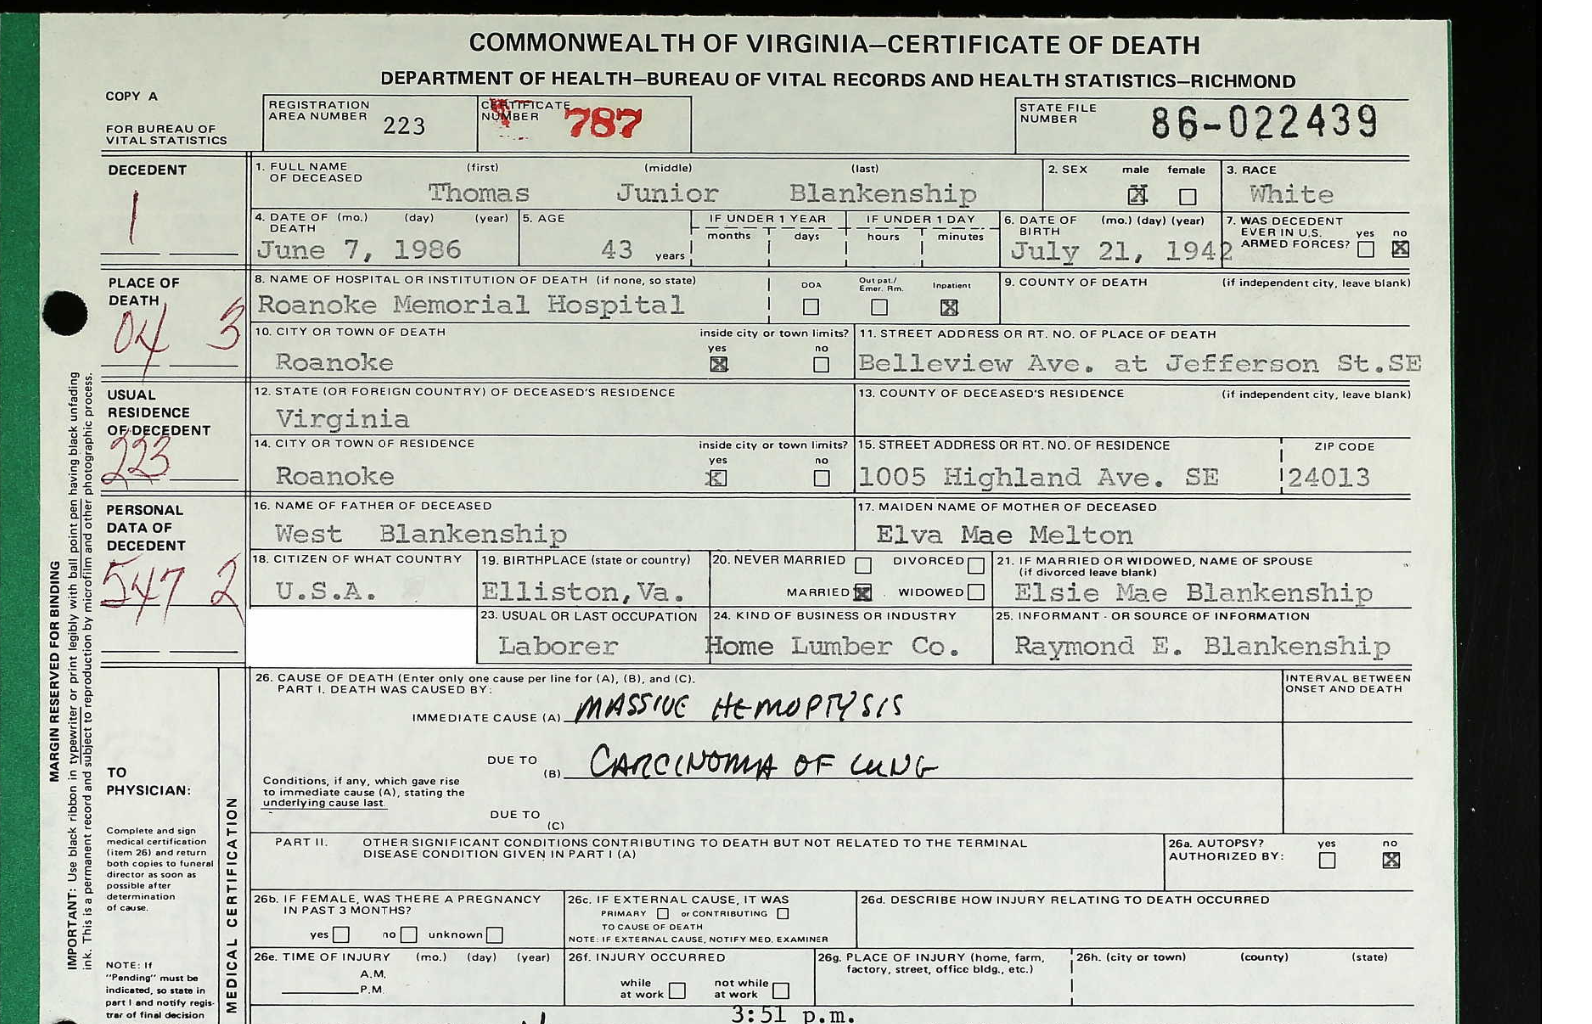 COMMONWEALTH OF VIRGINIA—CERTIFICATE OF DEATH
DEPARTMENT OF HEALTH—BUREAU OF VITAL RECORDS AND HEALTH STATISTICS—RICHMOND
COPY A
FOR BUREAU OF VITAL STATISTICS
REGISTRATION AREA NUMBER 223
CERTIFICATE NUMBER 787
STATE FILE NUMBER 86-022439
DECEDENT
1
1. FULL NAME OF DECEASED (first) (middle) (last)
Thomas Junior Blankenship
2. SEX male female
X
3. RACE
White
4. DATE OF DEATH (mo.) (day) (year)
June 7, 1986
5. AGE
43 years
IF UNDER 1 YEAR
months days
IF UNDER 1 DAY
hours minutes
6. DATE OF BIRTH (mo.) (day) (year)
July 21, 1942
7. WAS DECEDENT EVER IN U.S. ARMED FORCES? yes no
X
PLACE OF DEATH
04 3
8. NAME OF HOSPITAL OR INSTITUTION OF DEATH (if none, so state)
Roanoke Memorial Hospital
DOA Out pat./ Emer. Rm. Inpatient
X
9. COUNTY OF DEATH (if independent city, leave blank)
10. CITY OR TOWN OF DEATH inside city or town limits?
yes no
Roanoke X
11. STREET ADDRESS OR RT. NO. OF PLACE OF DEATH
Belleview Ave. at Jefferson St.SE
USUAL RESIDENCE OF DECEDENT
223
12. STATE (OR FOREIGN COUNTRY) OF DECEASED'S RESIDENCE
Virginia
13. COUNTY OF DECEASED'S RESIDENCE (if independent city, leave blank)
14. CITY OR TOWN OF RESIDENCE inside city or town limits?
yes no
Roanoke X
15. STREET ADDRESS OR RT. NO. OF RESIDENCE ZIP CODE
1005 Highland Ave. SE 24013
PERSONAL DATA OF DECEDENT
547 2
16. NAME OF FATHER OF DECEASED
West Blankenship
17. MAIDEN NAME OF MOTHER OF DECEASED
Elva Mae Melton
18. CITIZEN OF WHAT COUNTRY
U.S.A.
19. BIRTHPLACE (state or country)
Elliston,Va.
20. NEVER MARRIED DIVORCED
MARRIED X WIDOWED
21. IF MARRIED OR WIDOWED, NAME OF SPOUSE
(if divorced leave blank)
Elsie Mae Blankenship
23. USUAL OR LAST OCCUPATION
Laborer
24. KIND OF BUSINESS OR INDUSTRY
Home Lumber Co.
25. INFORMANT - OR SOURCE OF INFORMATION
Raymond E. Blankenship
MARGIN RESERVED FOR BINDING
IMPORTANT: Use black ribbon in typewriter or print legibly with ball point pen having black unfading
ink. This is a permanent record and subject to reproduction by microfilm and other photographic process.
TO PHYSICIAN:
Complete and sign
medical certification
(item 26) and return
both copies to funeral
director as soon as
possible after
determination
of cause.
NOTE: If
"Pending" must be
indicated, so state in
part I and notify regis-
trar of final decision
MEDICAL CERTIFICATION
26. CAUSE OF DEATH (Enter only one cause per line for (A), (B), and (C).
PART I. DEATH WAS CAUSED BY:
INTERVAL BETWEEN ONSET AND DEATH
IMMEDIATE CAUSE (A) MASSIVE HEMOPTYSIS
DUE TO (B) CARCINOMA OF LUNG
Conditions, if any, which gave rise
to immediate cause (A), stating the
underlying cause last.
DUE TO (C)
PART II. OTHER SIGNIFICANT CONDITIONS CONTRIBUTING TO DEATH BUT NOT RELATED TO THE TERMINAL
DISEASE CONDITION GIVEN IN PART I (A)
26a. AUTOPSY? yes no
AUTHORIZED BY: X
26b. IF FEMALE, WAS THERE A PREGNANCY
IN PAST 3 MONTHS?
yes no unknown
26c. IF EXTERNAL CAUSE, IT WAS
PRIMARY or CONTRIBUTING
TO CAUSE OF DEATH
NOTE: IF EXTERNAL CAUSE, NOTIFY MED. EXAMINER
26d. DESCRIBE HOW INJURY RELATING TO DEATH OCCURRED
26e. TIME OF INJURY (mo.) (day) (year)
A.M.
P.M.
26f. INJURY OCCURRED
while at work not while at work
26g. PLACE OF INJURY (home, farm,
factory, street, office bldg., etc.)
26h. (city or town) (county) (state)
3:51 p.m.